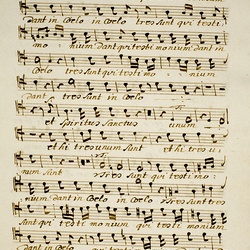 dant in Coelo in Coelo tres sunt qui testi
mo - nium dant qui testi monium dant in
Coelo tres sunt qui testi mo - nium
dant tres sunt in Coelo
et Spiritus Sanctus unum
et hi tres unum sunt et hi tres u
num sunt Tres sunt qui testi mo:
nium dant in Coelo in Coelo tres sunt tres
sunt qui testi monium qui testi monium
dant in Coelo